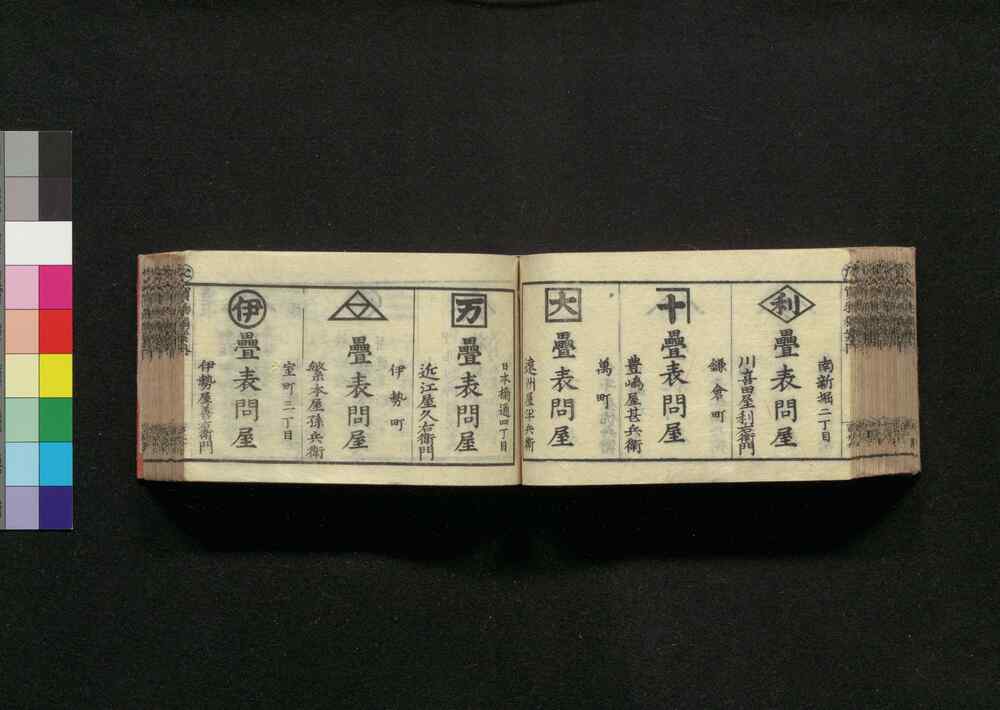 南新堀二丁目
利
疊表問屋
川喜田屋利右衛門
鎌倉町
十
疊表問屋
豊嶋屋甚兵衛
萬町
大
疊表問屋
遠州屋平兵衛
日本橋通四丁目
万
疊表問屋
近江屋久右衛門
伊勢町
疊表問屋
繁本屋孫兵衛
室町二丁目
伊
疊表問屋
伊勢屋善右衛門